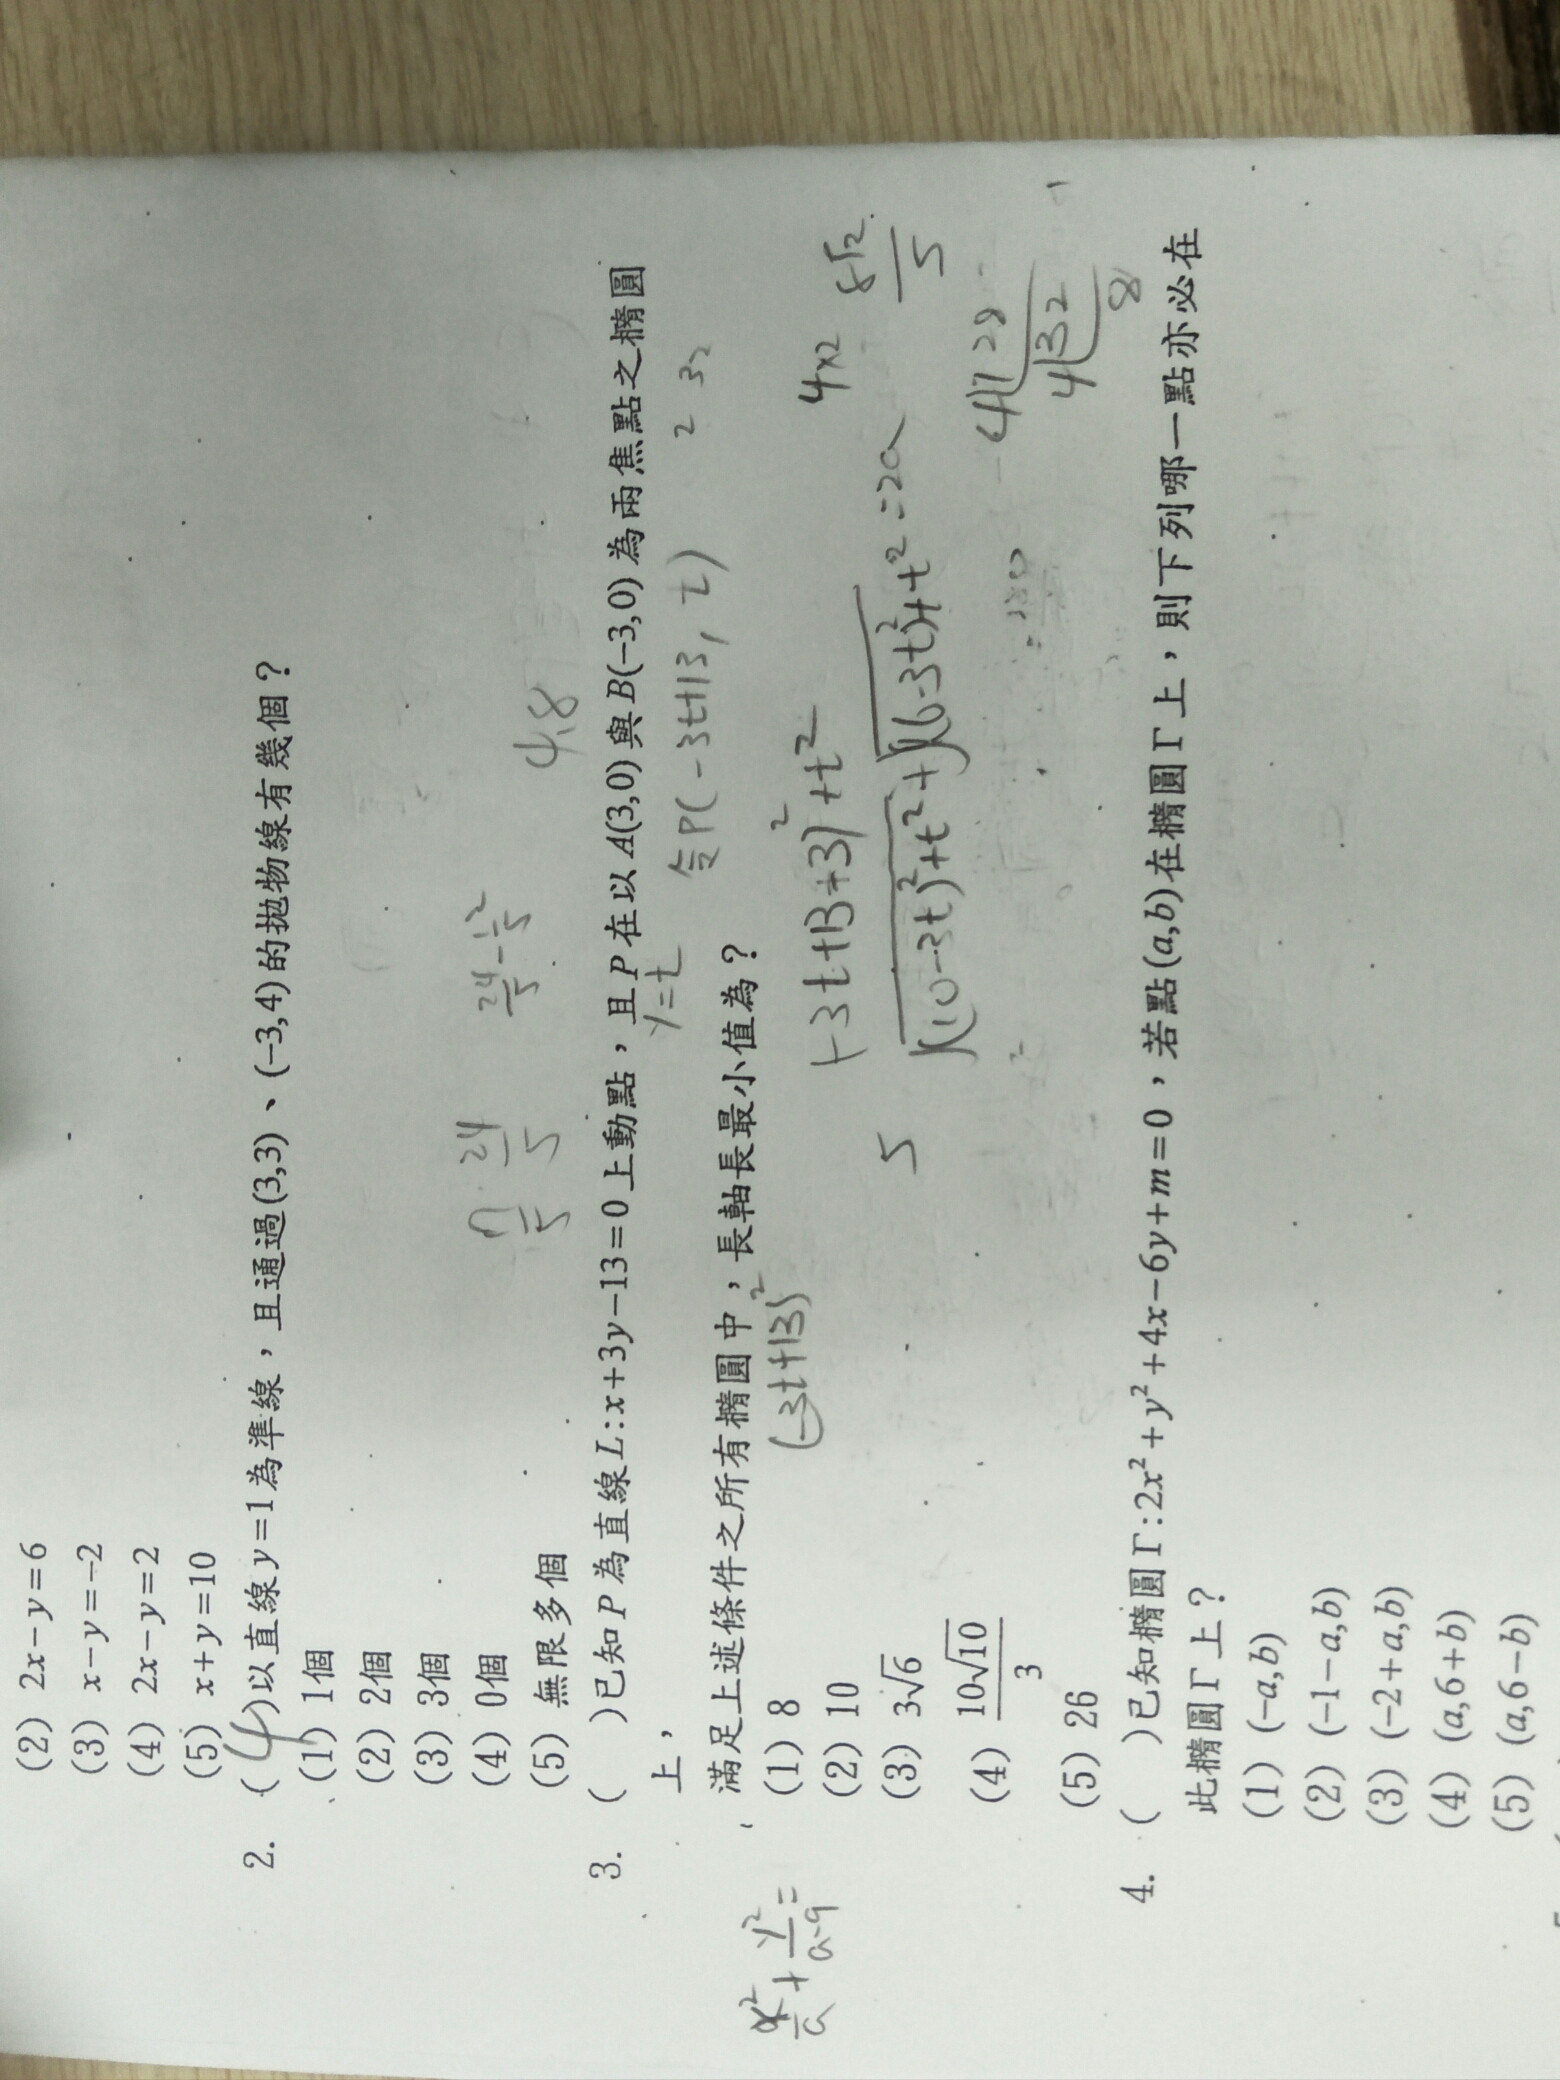 (2) 2x－y＝6
(3) x－y＝－2
(4) 2x－y＝2
(5) x＋y＝10
2. (4)以直線y＝1為準線，且通過(3,3)、(－3,4)的拋物線有幾個？
(1) 1個
(2) 2個
(3) 3個
(4) 0個
(5) 無限多個
24/5
24/5 - 1/5
4.8
3. ( )已知P為直線L:x＋3y－13＝0上動點，且P在以A(3,0)與B(－3,0)為兩焦點之橢圓
上，
y=t
令P(-3t+13, t)
2 32
滿足上述條件之所有橢圓中，長軸長最小值為？
(-3t+13)²
(-3t+13+3)²+t²
4x2
8√2/5
(1) 8
(2) 10
(3) 3√6
(4) 10√10/3
(5) 26
5
√(10-3t)²+t² + √(16-3t)²+t² =2a
4|128
4|32
8
x²/a + y²/a-9 =
4. ( )已知橢圓Γ:2x²＋y²＋4x－6y＋m＝0，若點(a,b)在橢圓Γ上，則下列哪一點亦必在
此橢圓Γ上？
(1) (－a,b)
(2) (－1－a,b)
(3) (－2＋a,b)
(4) (a,6＋b)
(5) (a,6－b)